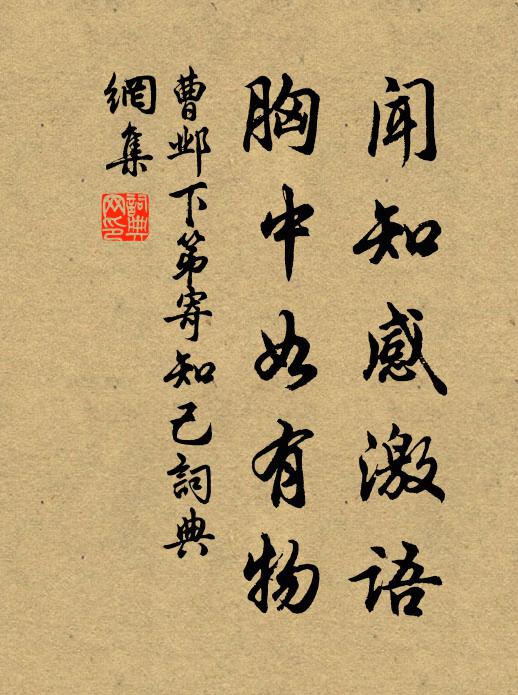 聞知感激語
胸中如有物
曹邺下第寄知己詞典
網集
詞典
网印